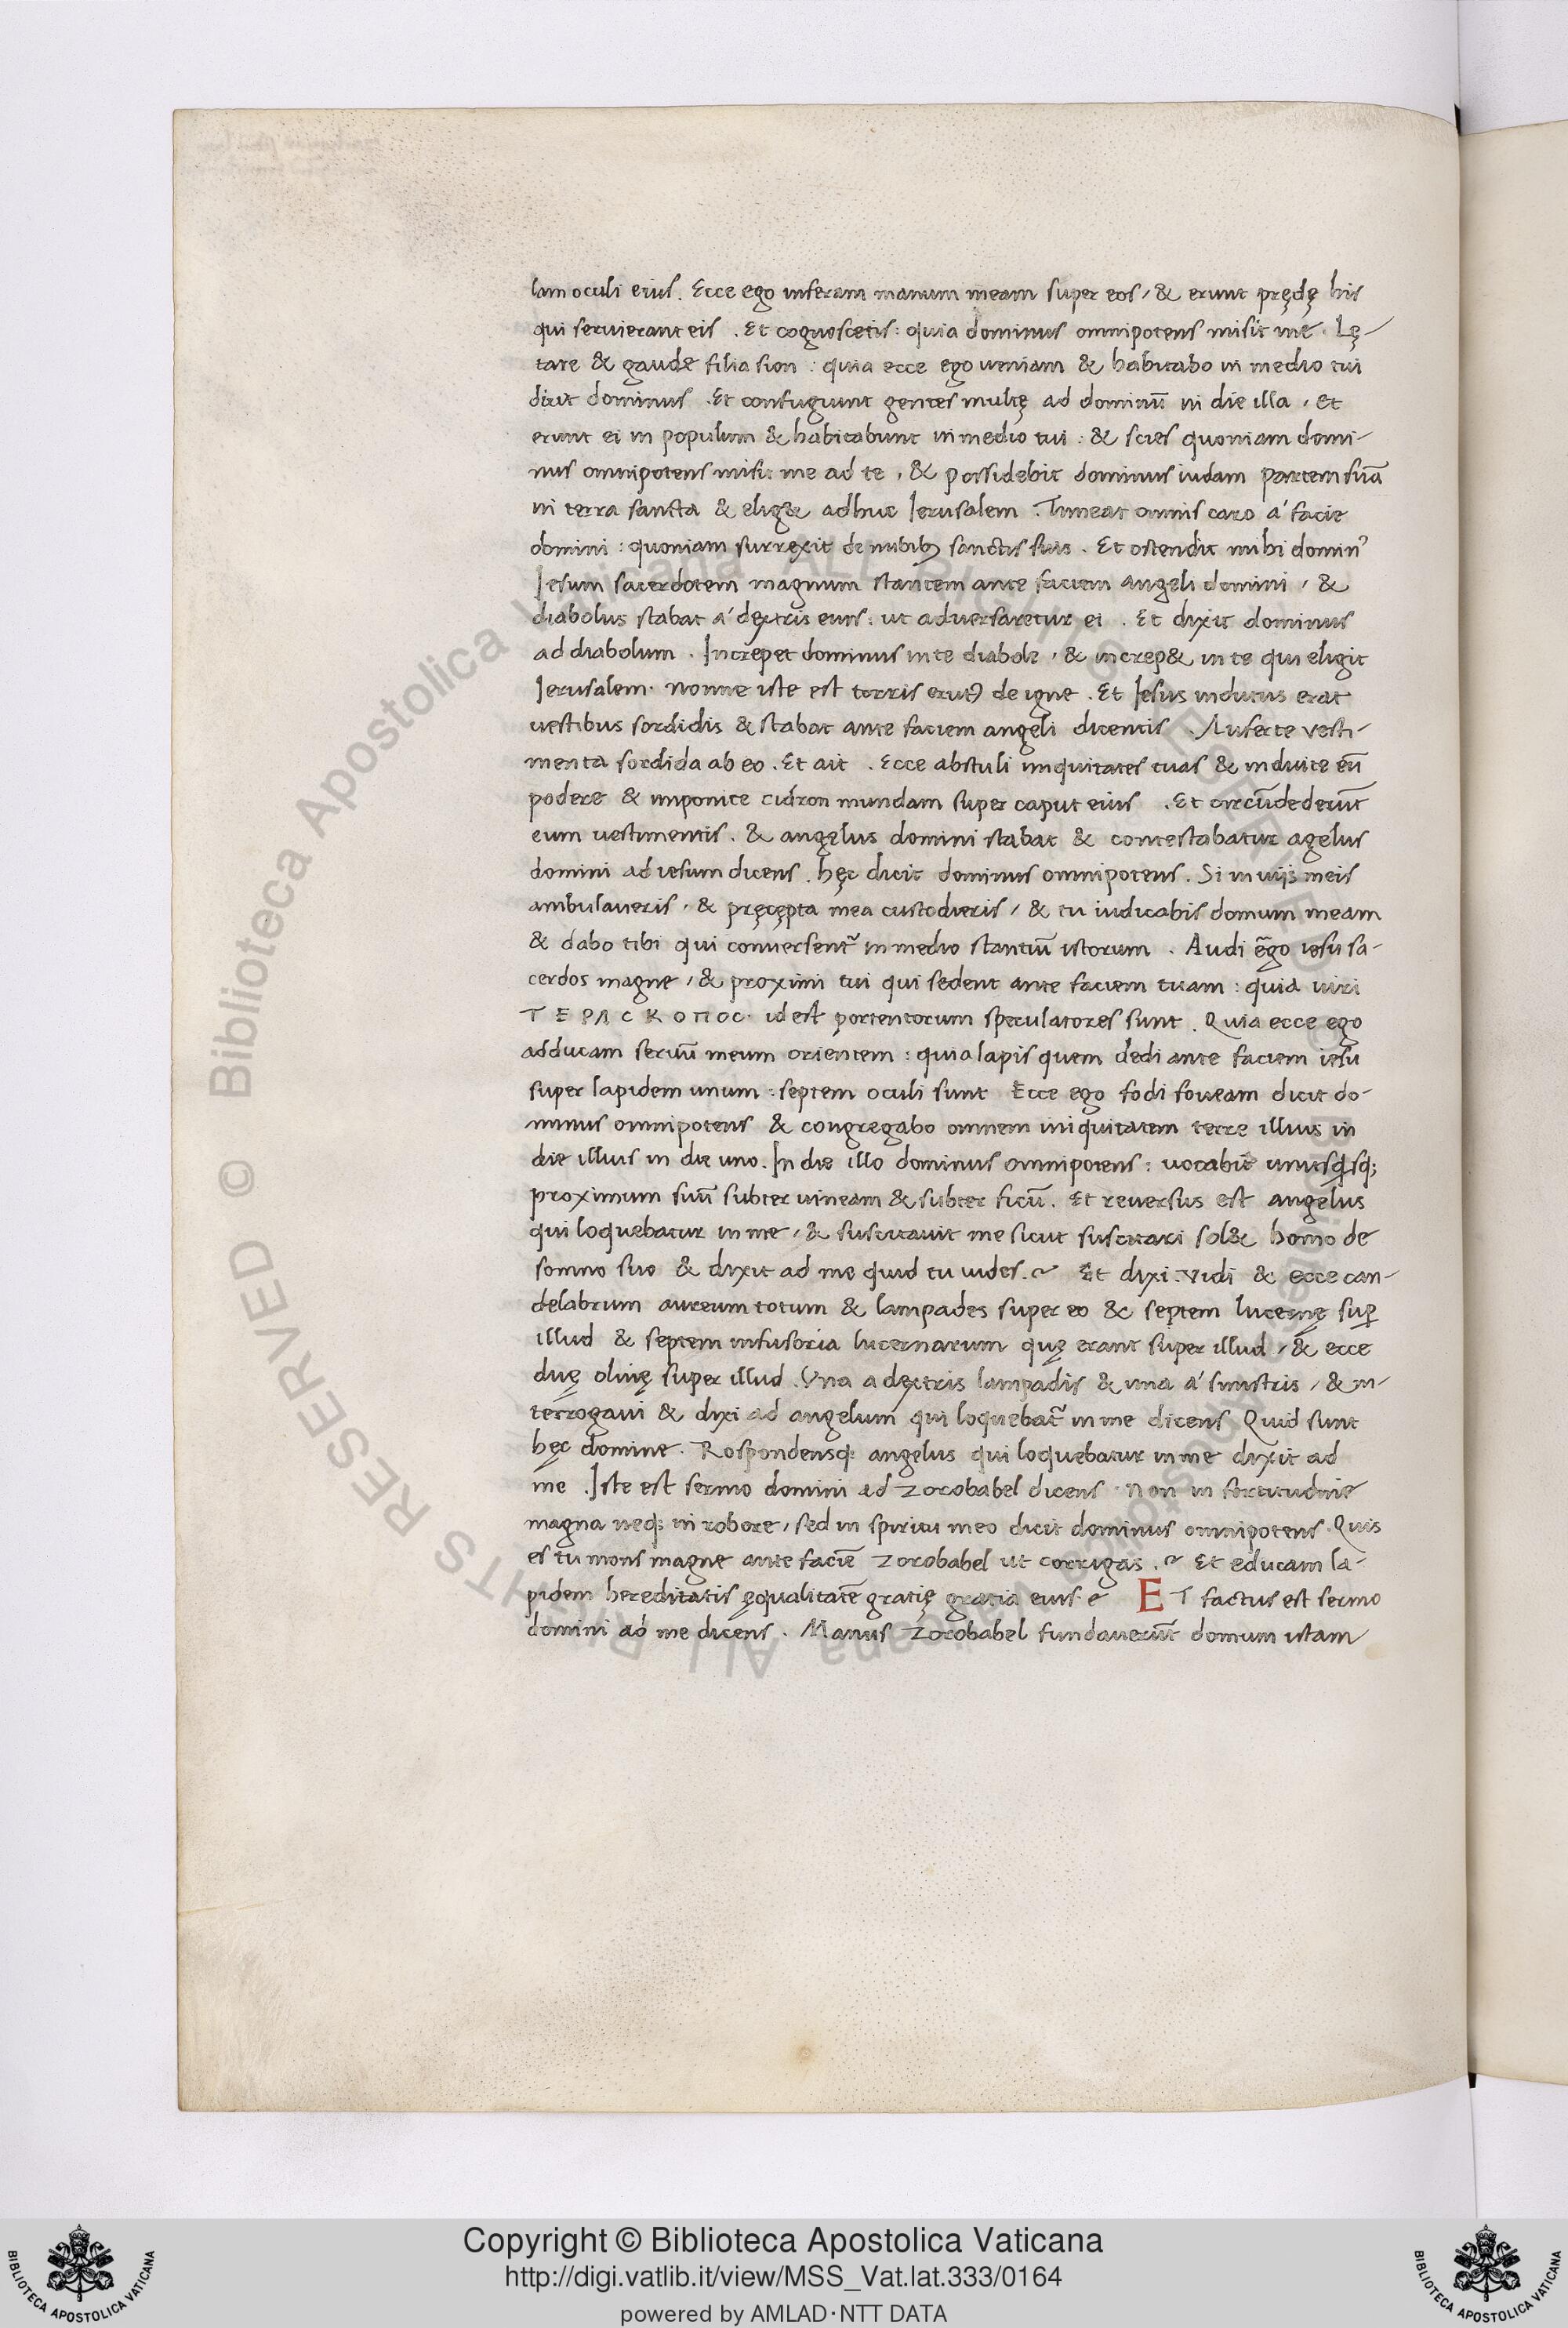 lam oculi eius. Ecce ego inferam manum meam super eos, & erunt prędę his
qui servierant eis . Et cognoscetis: quia dominus omnipotens misit me. Lę-
tare & gaude filia sion : quia ecce ego veniam & habitabo in medio tui
dixit dominus . Et confugiunt gentes multę ad dominū in die illa, et
erunt ei in populum & habitabunt in medio tui : & scies quoniam domi-
nus omnipotens misit me ad te, & possidebit dominus iudam partem suā
in terra sancta & elig& adhuc Ierusalem . Timeat omnis caro á facie
domini : quoniam surrexit de nubibꝫ sanctis suis . Et ostendit mihi dominꝰ
Iesum sacerdotem magnum stantem ante faciem angeli domini, &
diabolus stabat á dextris eius: ut adversaretur ei . Et dixit dominus
ad diabolum . Increpet dominus in te diabole, & increp& in te qui eligit
Ierusalem. Nonne iste est torris erutꝰ de igne . Et Iesus indutus erat
vestibus sordidis & stabat ante faciem angeli dicentis . Auferte vesti-
menta sordida ab eo . Et ait . Ecce abstuli iniquitates tuas & induite eū
podere & imponite cidron mundam super caput eius . Et circūdederūt
eum vestimentis . & angelus domini stabat & contestabatur agelus
domini ad iesum dicens . hęc dicit dominus omnipotens. Si in viijs meis
ambulaveris, & pręcępta mea custodieris, & tu iudicabis domum meam
& dabo tibi qui conversent᷑ in medio stantiū istorum . Audi ēgo iesu sa-
cerdos magne, & proximi tui qui sedent ante faciem tuam : quia viri
ΤΕΡΑСΚΟΠΟС. id est portentorum speculatores sunt . Quia ecce ego
adducam servū meum orientem : quia lapis quem dedi ante faciem iesu
super lapidem unum : septem oculi sunt Ecce ego fodi foveam dicit do-
minus omnipotens & congregabo omnem iniquitatem terre illius in
die illius in die uno. In die illo dominus omnipotens : vocabit unusqsq;
proximum suū subter vineam & subter ficū. Et reversus est angelus
qui loquebatur in me, & suscitavit me sicut suscitari sol& homo de
somno suo & dixit ad me quid tu vides.~ Et dixi. vidi & ecce can-
delabrum aureum totum & lampades super eo & septem lucernę suꝑ
illud & septem infusoria lucernarum quę erant super illud, & ecce
duę olivę super illud . Una a dextris lampadis & una á sinistris, & in-
terrogavi & dixi ad angelum qui loquebat᷑ in me dicens Quid sunt
hęc domine. Rospondensq; angelus qui loquebatur in me dixit ad
me . Iste est sermo domini ad Zorobabel dicens . Non in fortitudine
magna neq; in robore, sed in spiritu meo dicit dominus omnipotens. Quis
es tu mons magne ante faciē Zorobabel ut corrigas .~ Et educam la-
pidem hereditatis ęqualitatē gratię gratia eius ~ ET factus est sermo
domini ad me dicens . Manus Zorobabel fundaverūt domum istam
Copyright © Biblioteca Apostolica Vaticana
http://digi.vatlib.it/view/MSS_Vat.lat.333/0164
powered by AMLAD·NTT DATA